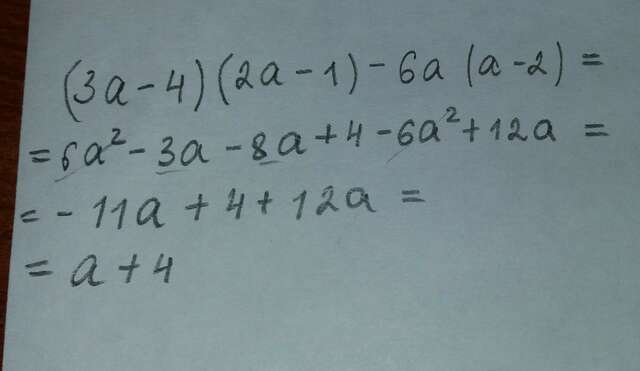 (3a-4)(2a-1)-6a(a-2)=
=6a²-3a-8a+4-6a²+12a=
=-11a+4+12a=
=a+4